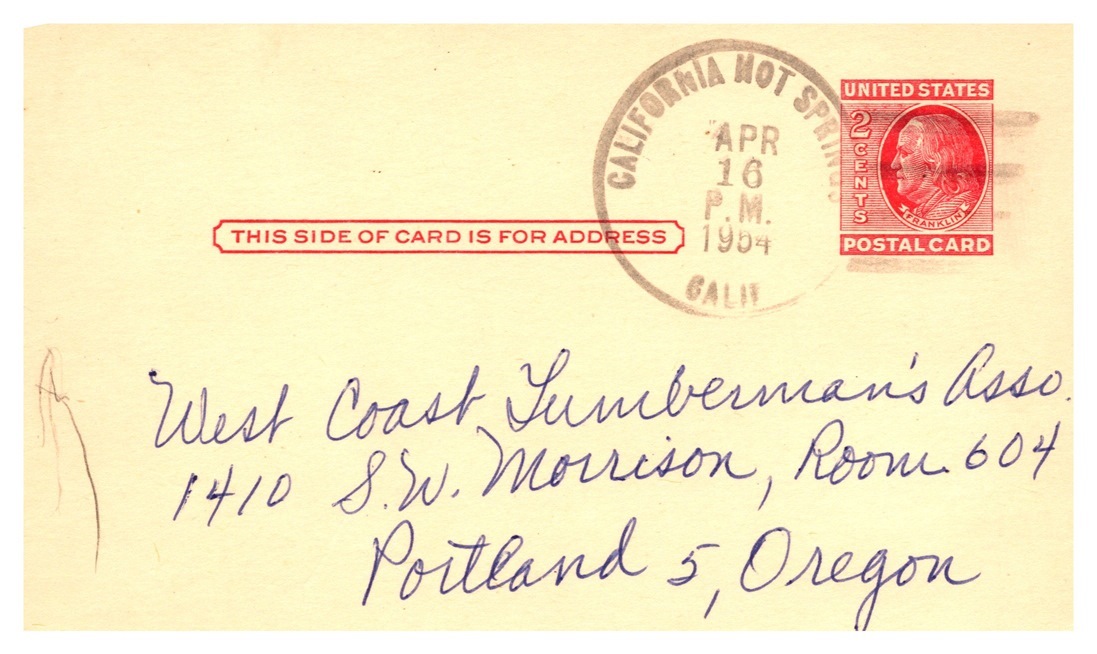 CALIFORNIA HOT SPRINGS
APR
16
P.M.
1954
CALIF
UNITED STATES
2 CENTS
FRANKLIN
POSTAL CARD
THIS SIDE OF CARD IS FOR ADDRESS
West Coast Lumberman's Asso.
1410 S.W. Morrison, Room 604
Portland 5, Oregon